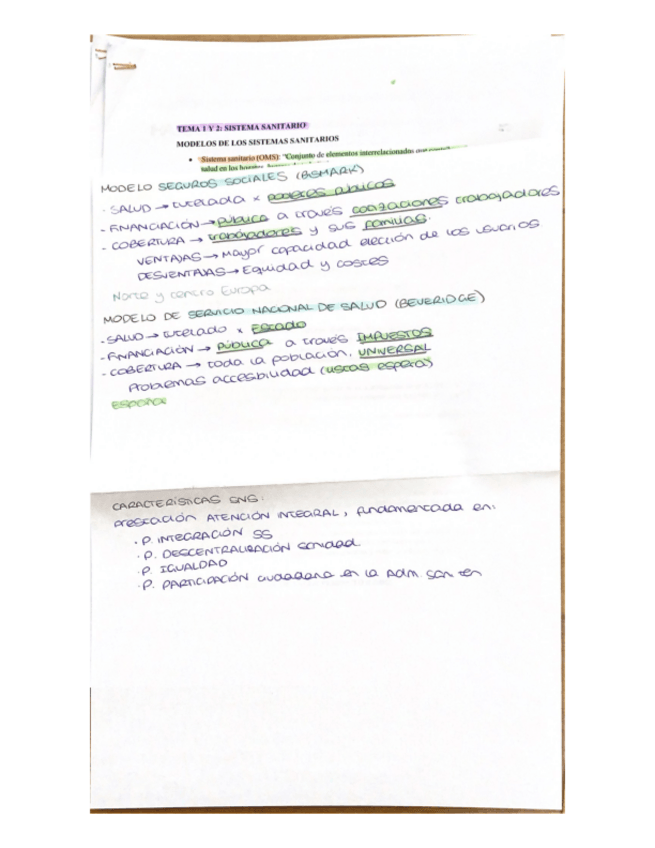 TEMA 1 Y 2: SISTEMA SANITARIO
MODELOS DE LOS SISTEMAS SANITARIOS
• Sistema sanitario (OMS): "Conjunto de elementos interrelacionados que
salud en los
MODELO SEGUROS SOCIALES (BSMARK)
- SALUD → tutelada x poderes públicos
- FINANCIACIÓN → pública a través cotizaciones trabajadores
- COBERTURA → trabajadores y sus familias.
VENTAJAS → Mayor capacidad elección de los usuarios
DESVENTAJAS → Equidad y costes
Norte y centro Europa
MODELO DE SERVICIO NACIONAL DE SALUD (BEVERIDGE)
- SALUD → tutelado x Estado
- FINANCIACIÓN → pública a través IMPUESTOS
- COBERTURA → toda la población. UNIVERSAL
Problemas accesbilidad (listas espera)
España
CARACTERÍSTICAS SNS:
prestación ATENCIÓN INTEGRAL, fundamentada en:
· P. INTEGRACIÓN SS
· P. DESCENTRALIZACIÓN sanidad
· P. IGUALDAD
· P. PARTICIPACIÓN ciudadana en la Adm. San